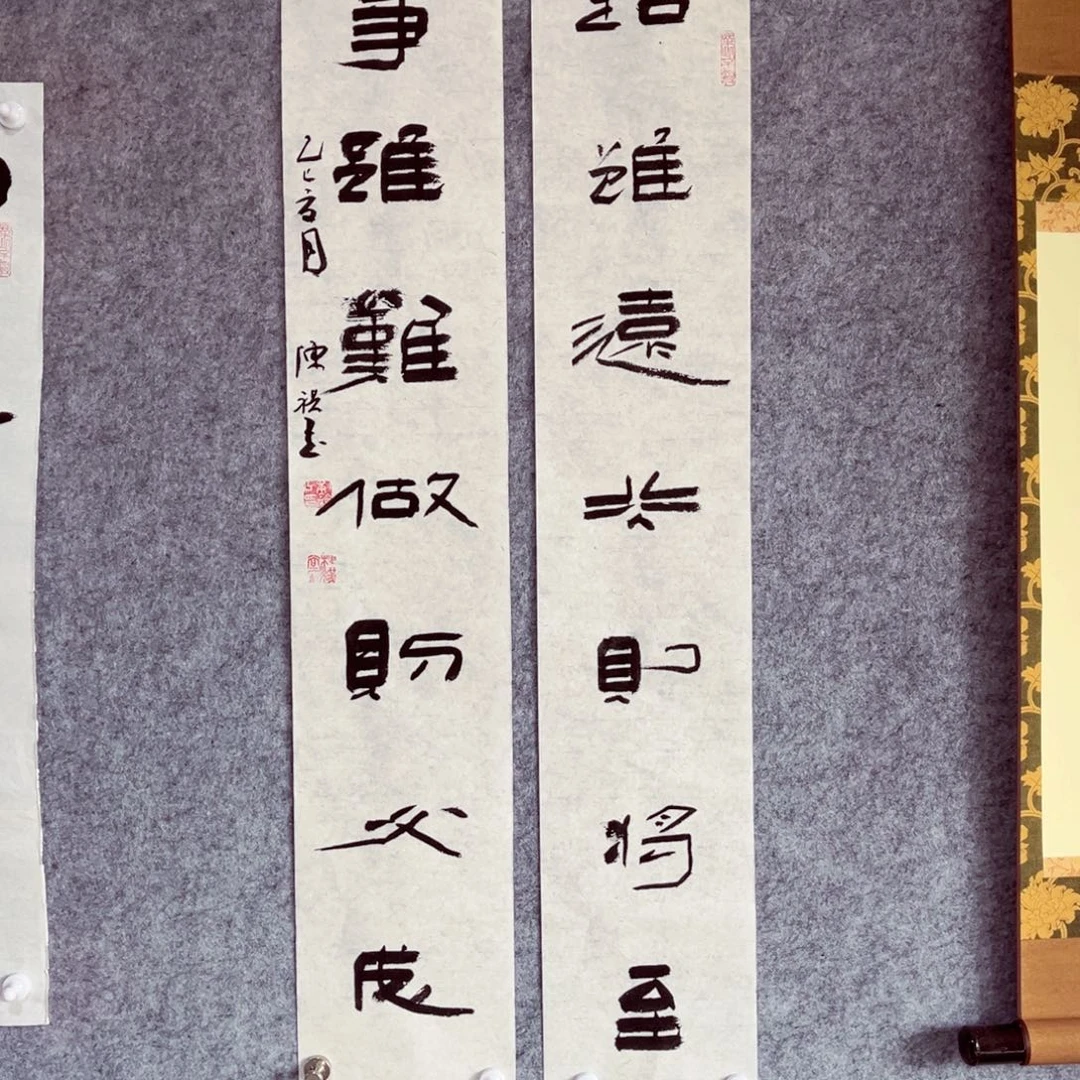 路雖遠行則將至
事雖難做則必成
乙巳
月
陳